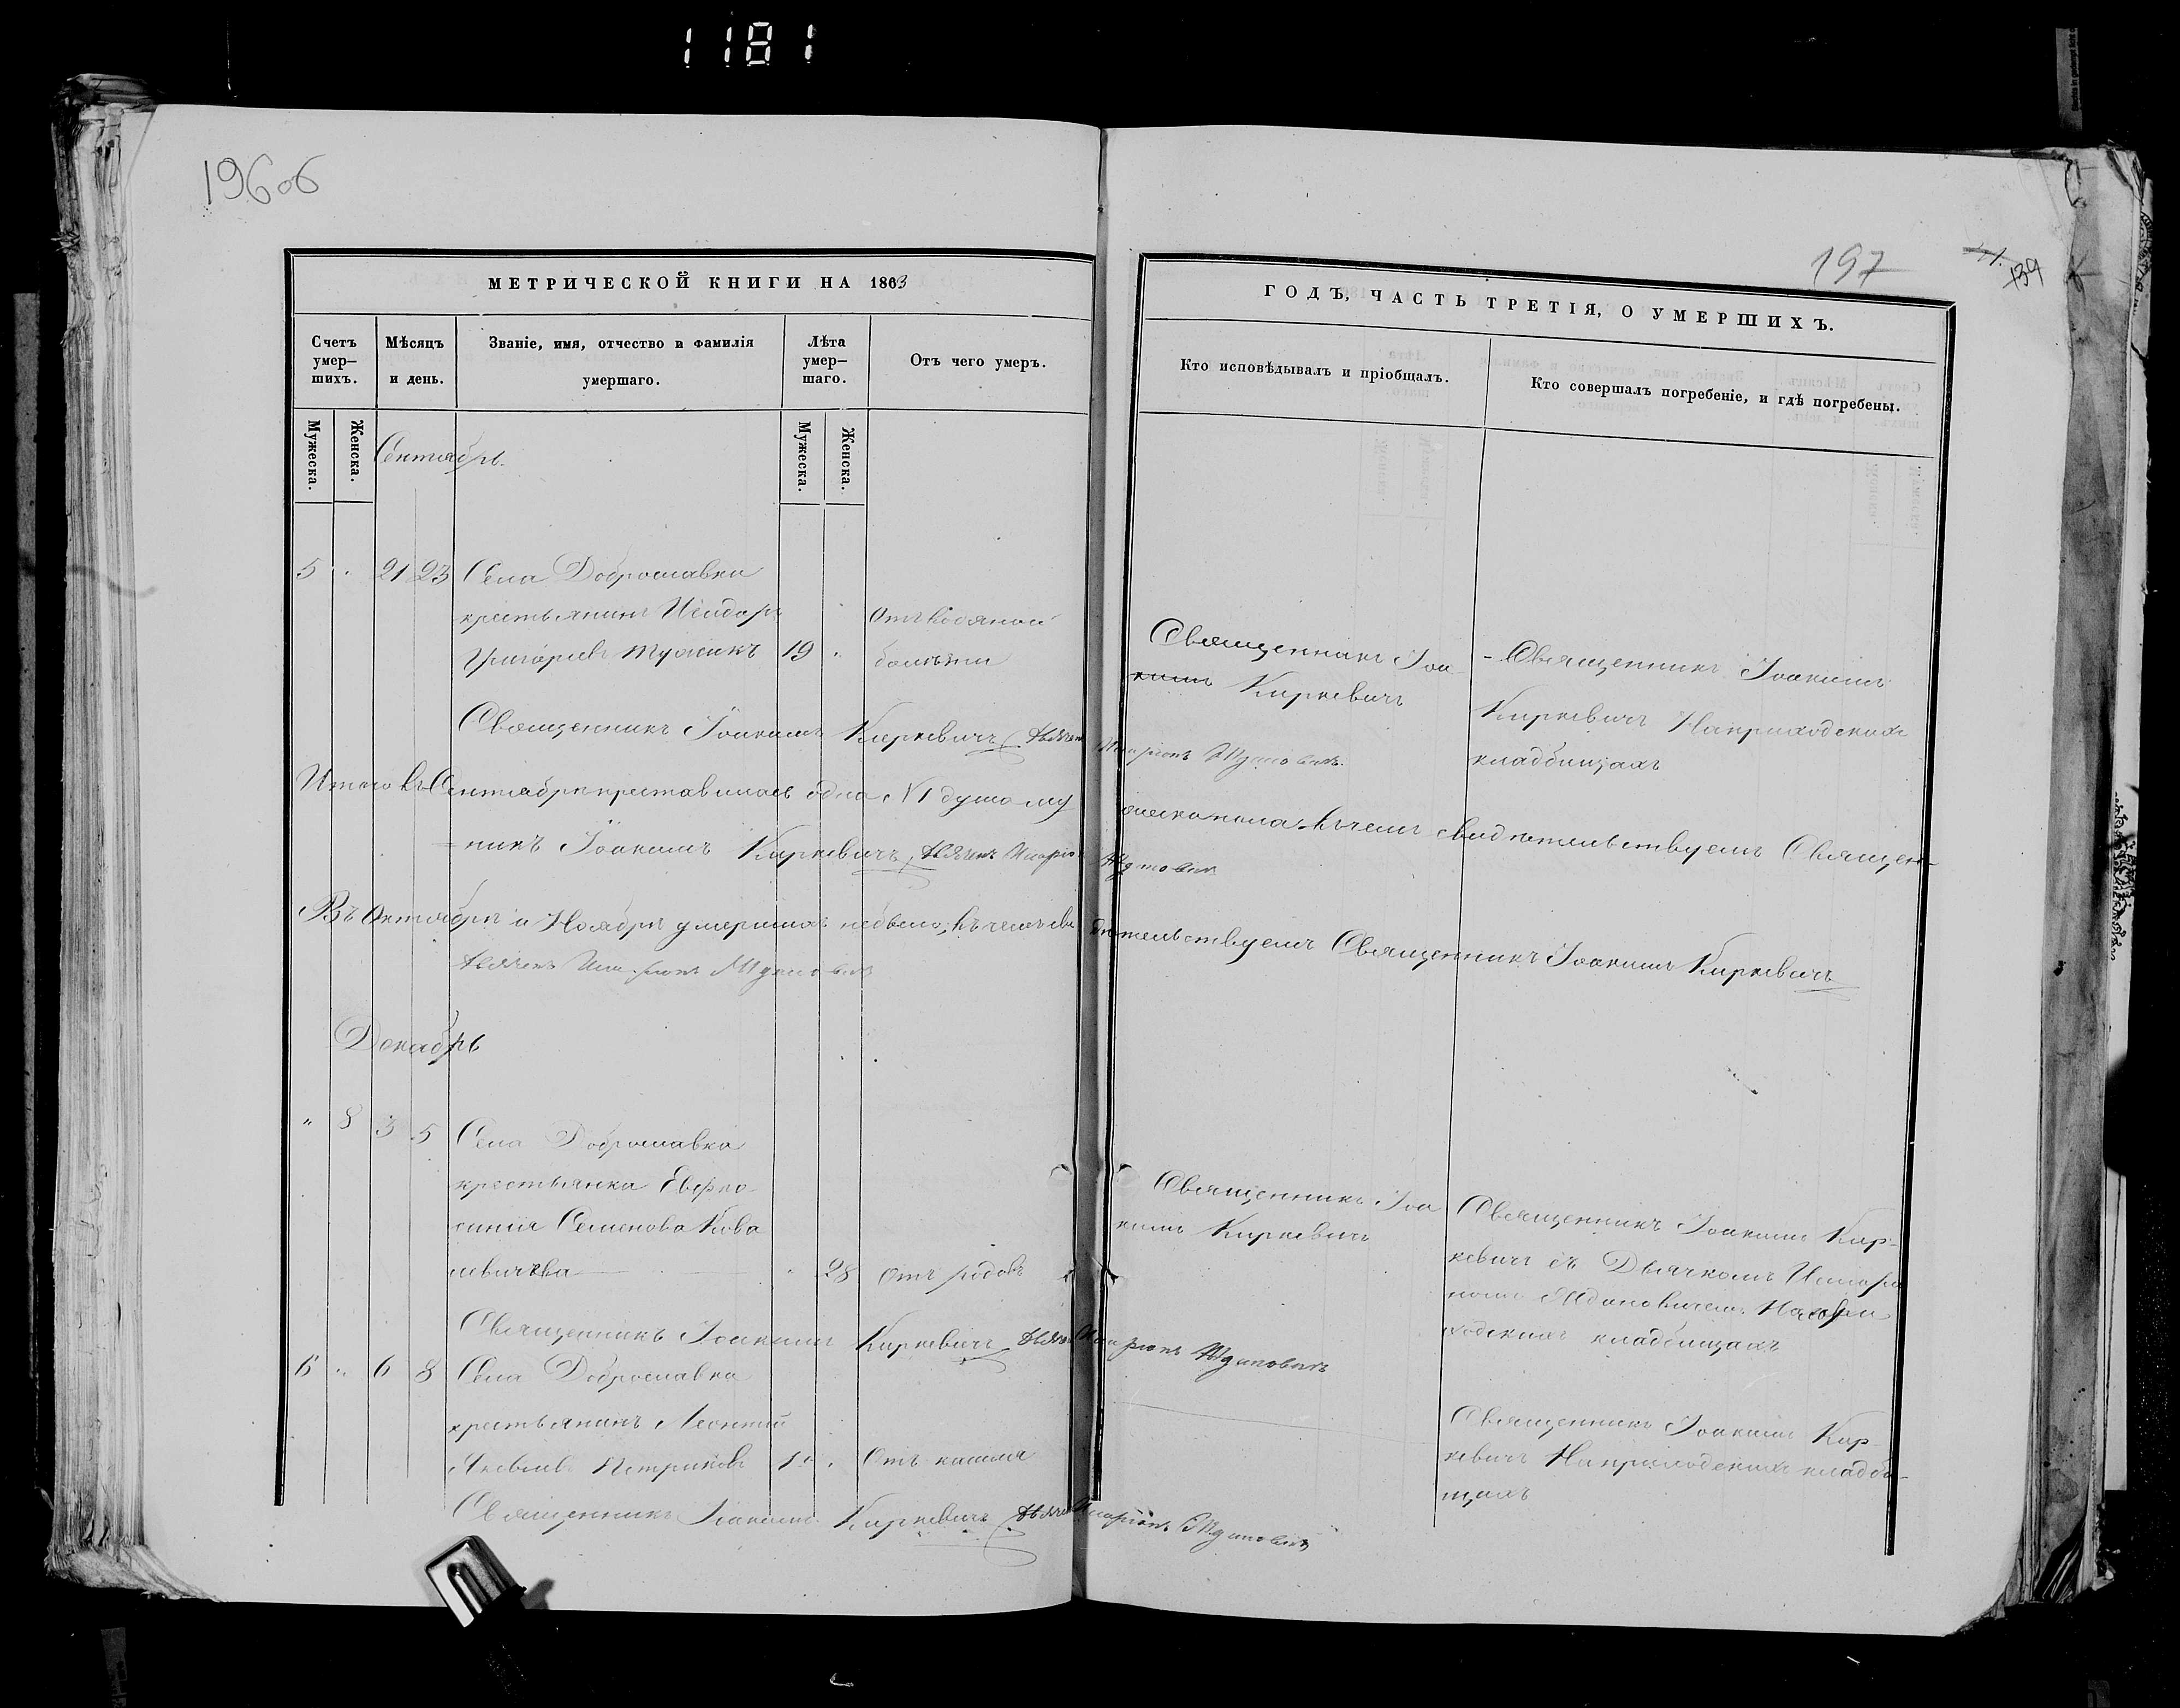 1181
196об
197
139
МЕТРИЧЕСКОЙ КНИГИ НА 1863
ГОДЪ, ЧАСТЬ ТРЕТІЯ, О УМЕРШИХЪ.
Счетъ умер—шихъ.
Мѣсяцъ и день.
Званіе, имя, отчество и фамилія умершаго.
Лѣта умер—шаго.
Отъ чего умеръ.
Кто исповѣдывалъ и пріобщалъ.
Кто совершалъ погребеніе, и гдѣ погребены.
Мужеска.
Женска.
Мужеска.
Женска.
Сентябрь.
5 " 21 23 Села Доброславки
крестьянинъ Исидоръ
Григорьевъ 19 "
Отъ водяной
болѣзни
Священникъ Іоа
кимъ Киркевичъ
Священникъ Іоакимъ
Киркевичъ На приходскихъ
кладбищахъ
Священникъ Іоакимъ Киркевичъ Дьячекъ Иларіонъ Ждановичъ
Итого въ Сентябрѣ преставилась одна №1 душа му
жеска пола, въ чемъ свидѣтельствуемъ Священ-
никъ Іоакимъ Киркевичъ Дьячекъ Иларіонъ Ждановичъ
Въ Октябрѣ и Ноябрѣ умершихъ небыло, въ чемъ сви
дѣтельствуемъ Священникъ Іоакимъ Киркевичъ
Дьячекъ Иларіонъ Ждановичъ
Декабрь
" 8 3 5 Села Доброславки
крестьянка Евфро
синія Семенова Кова
левичева " 28 Отъ родовъ
Священникъ Іоа
кимъ Киркевичъ
Священникъ Іоакимъ Кир-
кевичъ съ Дьячкомъ Иларіо
номъ Ждановичемъ На при
ходскихъ кладбищахъ
Священникъ Іоакимъ Киркевичъ Дьячекъ Иларіонъ Ждановичъ
6 " 6 8 Села Доброславки
крестьянинъ Леонтій
Яковлевъ Петриковъ " Отъ кашля
Священникъ Іоакимъ Кир
кевичъ На приходскихъ кладби-
щахъ
Священникъ Іоакимъ Киркевичъ Дьячекъ Иларіонъ Ждановичъ